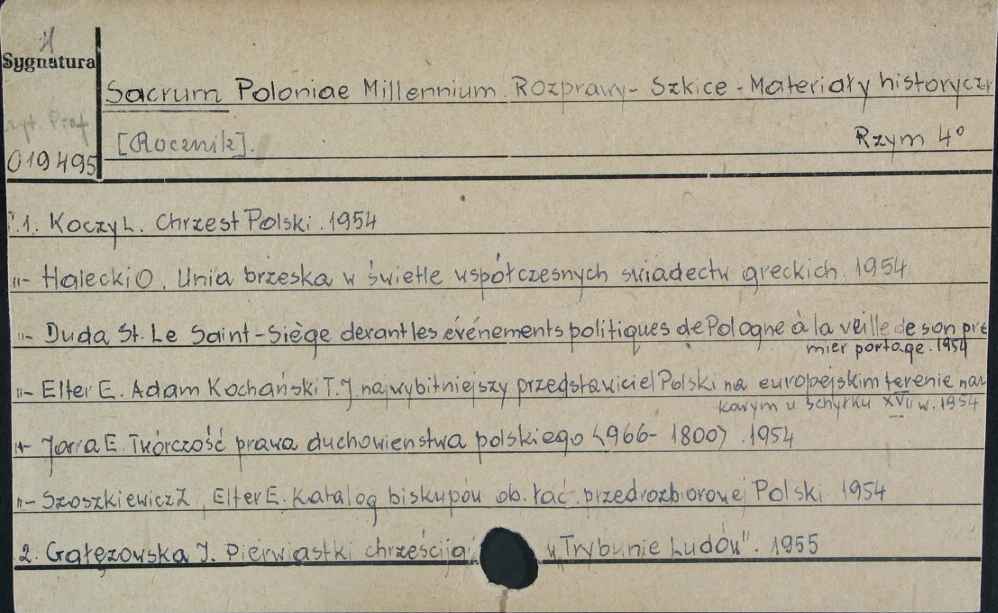 H
Sygnatura
Sacrum Poloniae Millennium Rozprawy - Szkice - Materiały historyczn
czyt. Prof
[Rocznik]. Rzym 4°
019495
T.1. Koczy L. Chrzest Polski. 1954
"- Halecki O. Unia brzeska w świetle współczesnych świadectw greckich. 1954
"- Duda St. Le Saint-Siège devant les événements politiques de Pologne à la veille de son pre
mier portage. 1954
"- Elter E. Adam Kochański T.J. najwybitniejszy przedstawiciel Polski na europejskim terenie nau
kowym u schyłku XVII w. 1954
"- Jarra E. Twórczość prawa duchowieństwa polskiego <966-1800>. 1954
"- Szoszkiewicz Z, Elter E. Katalog biskupów ob. łac. przedrozbiorowej Polski 1954
2. Gałęzowska J. Pierwiastki chrześcija w "Trybunie Ludów". 1955